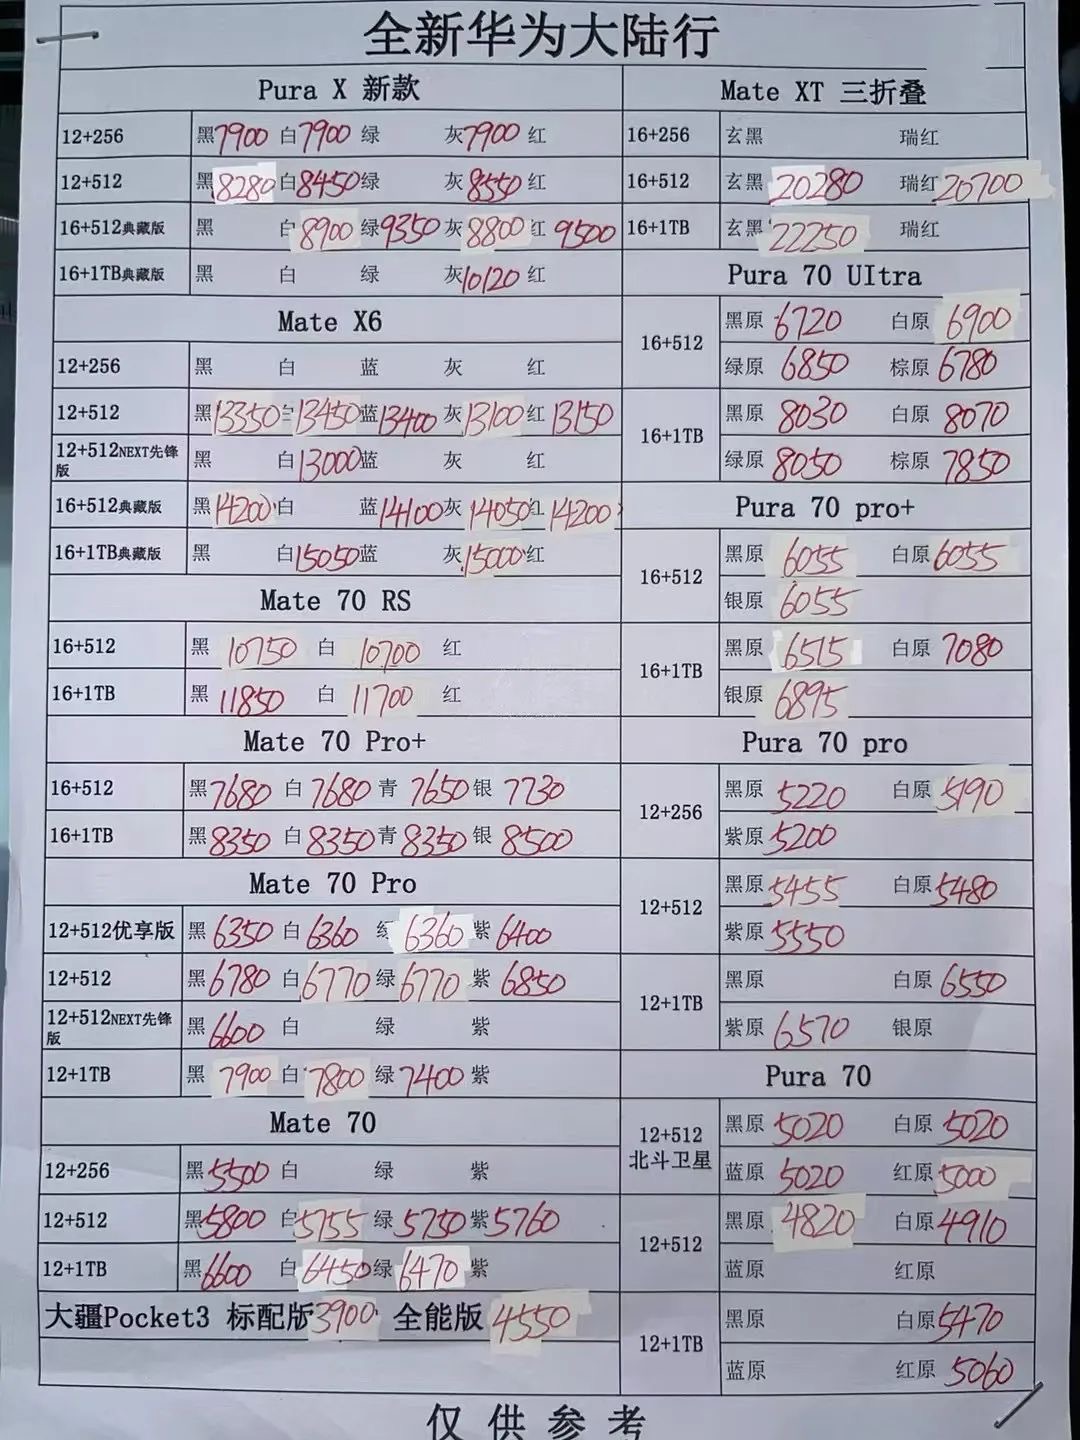 全新华为大陆行
Pura X 新款
12+256 黑7900 白7900 绿 灰7900 红
12+512 黑8280 白8450 绿 灰8550 红
16+512典藏版 黑 白8900 绿9350 灰8800 红9500
16+1TB典藏版 黑 白 绿 灰10120 红
Mate X6
12+256 黑 白 蓝 灰 红
12+512 黑13350 白13450 蓝13400 灰13100 红13150
12+512NEXT先锋版 黑 白13000 蓝 灰 红
16+512典藏版 黑14200 白 蓝14100 灰14050 红14200
16+1TB典藏版 黑 白15050 蓝 灰15000 红
Mate 70 RS
16+512 黑 10750 白 10700 红
16+1TB 黑 11850 白 11700 红
Mate 70 Pro+
16+512 黑7680 白7680 青7650 银7730
16+1TB 黑8350 白8350 青8350 银8500
Mate 70 Pro
12+512优享版 黑6350 白6360 绿6360 紫6400
12+512 黑6780 白6770 绿6770 紫6850
12+512NEXT先锋版 黑6600 白 绿 紫
12+1TB 黑7900 白7800 绿7400 紫
Mate 70
12+256 黑5500 白 绿 紫
12+512 黑5800 白5755 绿5750 紫5760
12+1TB 黑6600 白6450 绿6470 紫
大疆Pocket3 标配版3900 全能版4550
Mate XT 三折叠
16+256 玄黑 瑞红
16+512 玄黑20280 瑞红20700
16+1TB 玄黑22250 瑞红
Pura 70 UItra
16+512 黑原6720 白原6900
绿原6850 棕原6780
16+1TB 黑原8030 白原8070
绿原8050 棕原7850
Pura 70 pro+
16+512 黑原6055 白原6055
银原6055
16+1TB 黑原6515 白原7080
银原6895
Pura 70 pro
12+256 黑原5220 白原5190
紫原5200
12+512 黑原5455 白原5480
紫原5550
12+1TB 黑原 白原6550
紫原6570 银原
Pura 70
12+512北斗卫星 黑原5020 白原5020
蓝原5020 红原5000
12+512 黑原4820 白原4910
蓝原 红原
12+1TB 黑原 白原5470
蓝原 红原5060
仅供参考